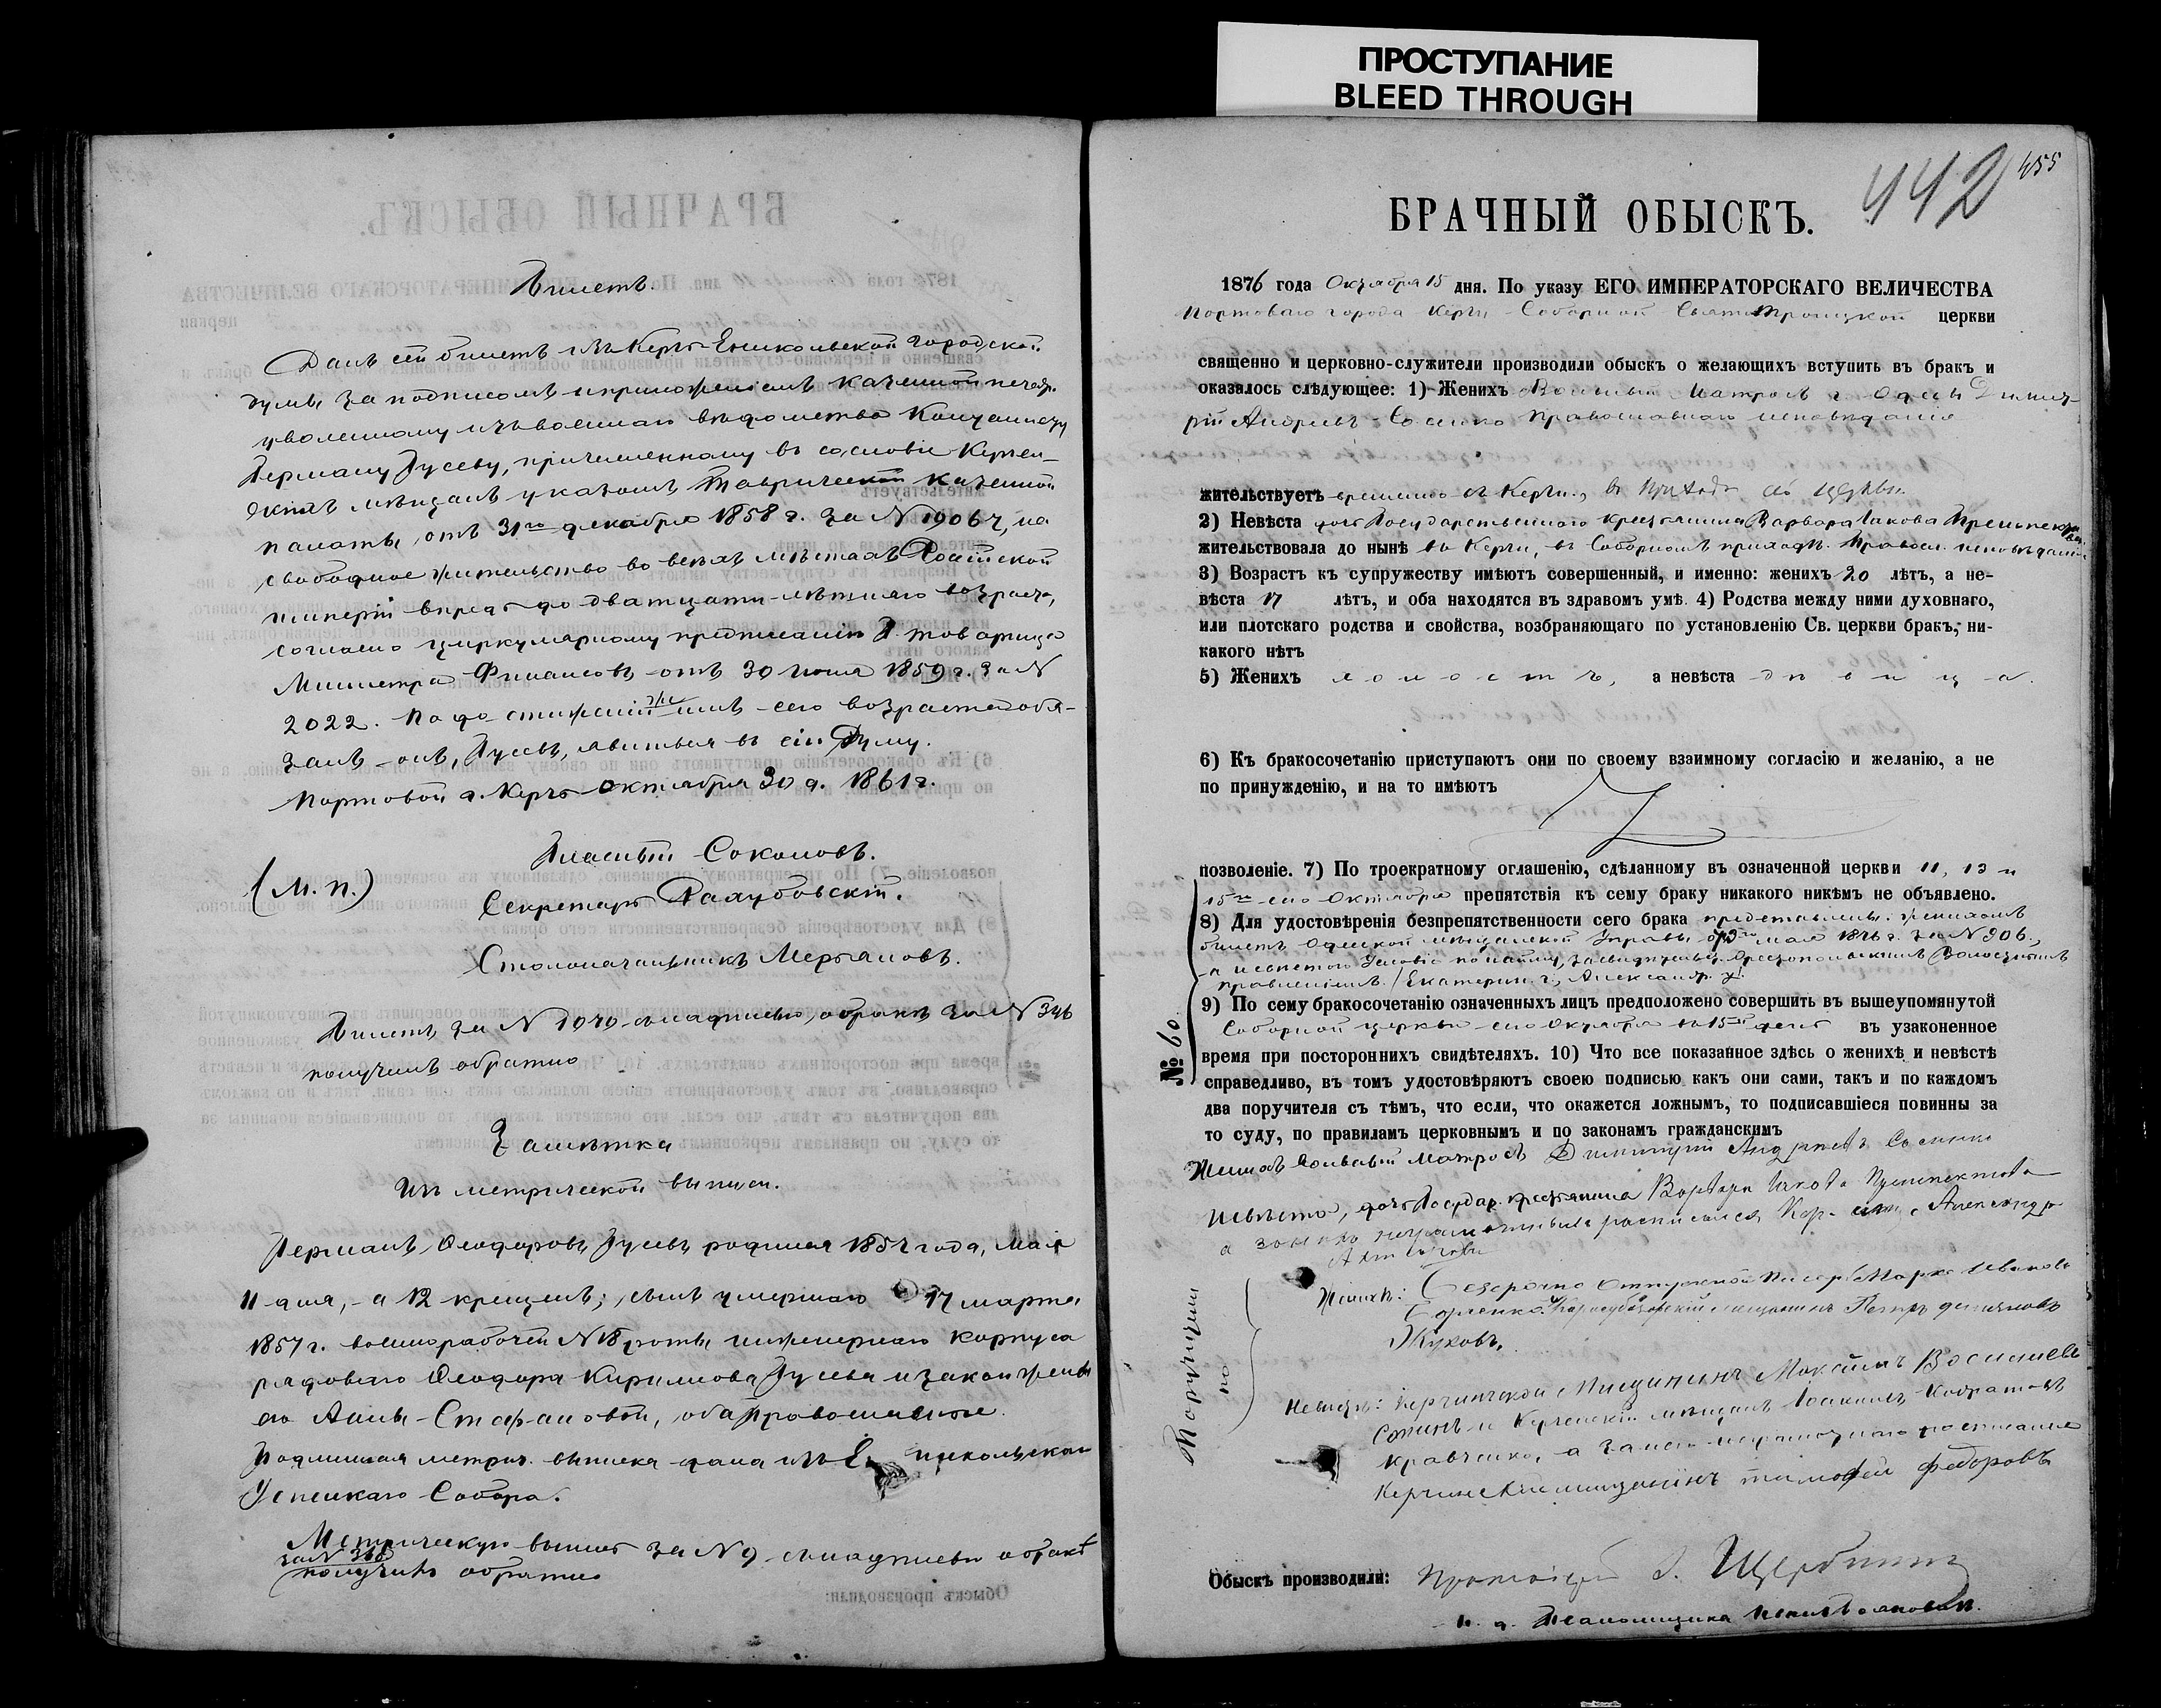 ПРОСТУПАНИЕ
BLEED THROUGH
Билетъ.
Данъ сей билетъ изъ Керчь-Еникольской городской
думы за подписомъ и приложеніемъ казенной печати
уволенному изъ военнаго вѣдомства Кантонисту
Герману Гусеву, причисленному въ сословіе Керчен-
скихъ мѣщанъ указомъ Таврической казенной
палаты, отъ 31го декабря 1858 г. за N 19067, на
свободное жительство во всѣхъ мѣстахъ Россійской
имперіи впредь до дватцати-лѣтняго возраста,
согласно циркулярному предписанію Г. товарища
Министра Финансовъ отъ 30 Іюня 1859 г. за N
2022. По достиженіи же имъ сего возраста обя-
занъ онъ, Гусевъ, явиться въ сію Думу.
Портовой г. Керчь Октября 30 д. 1861 г.
Гласный Соколовъ.
(М. П.)
Секретарь
Столоначальникъ
Билетъ за N 1070 съ надписью о бракѣ за N 346
получилъ обратно
Замѣтка
Изъ метрической выписи.
Германъ Ѳеодоровъ Гусевъ родился 1852 года, Мая
11 дня, а 12 крещенъ; сынъ умершаго 17 марта
1857 г. военнорабочей N 18 роты инженернаго корпуса
рядоваго Ѳеодора Кирилова Гусева и закон. жены
его Анны Стефановой, оба православные.
Подлинная метрич. выписка дана изъ Еникольскаго
Успенскаго Собора.
Метрическую выпись за N 9 съ надписью о бракѣ
за N 346
получилъ обратно
442 455
БРАЧНЫЙ ОБЫСКЪ.
1876 года Октября 15 дня. По указу ЕГО ИМПЕРАТОРСКАГО ВЕЛИЧЕСТВА
Портоваго города Керчи Соборной Свято Троицкой церкви
священно и церковно-служители производили обыскъ о желающихъ вступить въ бракъ и
оказалось слѣдующее: 1) Женихъ Вольный Матросъ г. Одессы Димит-
рій Андреевъ Православнаго исповѣданія
жительствуетъ временно въ Керчи, въ приходѣ сей церкви.
2) Невѣста дочь Государственнаго крестьянина Варвара Іакова
жительствовала до нынѣ въ Керчи, въ Соборномъ приходѣ. Правосл. исповѣданія
3) Возрастъ къ супружеству имѣютъ совершенный, и именно: женихъ 20 лѣтъ, а не-
вѣста 17 лѣтъ, и оба находятся въ здравомъ умѣ. 4) Родства между ними духовнаго,
или плотскаго родства и свойства, возбраняющаго по установленію Св. церкви бракъ, ни-
какого нѣтъ
5) Женихъ холостъ, а невѣста дѣвица.
6) Къ бракосочетанію приступаютъ они по своему взаимному согласію и желанію, а не
по принужденію, и на то имѣютъ
позволеніе. 7) По троекратному оглашенію, сдѣланному въ означенной церкви 11, 13 и
15го сего Октября препятствія къ сему браку никакого никѣмъ не объявлено.
8) Для удостовѣренія безпрепятственности сего брака представлены: женихомъ
билетъ Одесской мѣщанской Управы мая 1876 г. за N 906,
а невѣстою Волостнымъ
правленіемъ /Екатерин. г., Александр. у.
9) По сему бракосочетанію означенныхъ лицъ предположено совершить въ вышеупомянутой
Соборной церкви сего Октября въ 15й день въ узаконенное
№ 60.
время при постороннихъ свидѣтеляхъ. 10) Что все показанное здѣсь о женихѣ и невѣстѣ
справедливо, въ томъ удостовѣряютъ своею подписью какъ они сами, такъ и по каждомъ
два поручителя съ тѣмъ, что если, что окажется ложнымъ, то подписавшіеся повинны за
то суду, по правиламъ церковнымъ и по законамъ гражданскимъ
Женихъ вольный матросъ Димитрій Андреевъ
Невѣста, дочь Государ. крестьянина Варвара Іакова
Александр
Поручители по
Женихѣ: отпускной писарь Марко Ивановъ
Карасубазарскій мещанинъ Петръ
Жуковъ.
Невѣстѣ: Мищининъ Максимъ Василиев
Керченскій мѣщан.
Кравченко, а
тимофей федоровъ
Обыскъ производили: Протоіерей Щербин